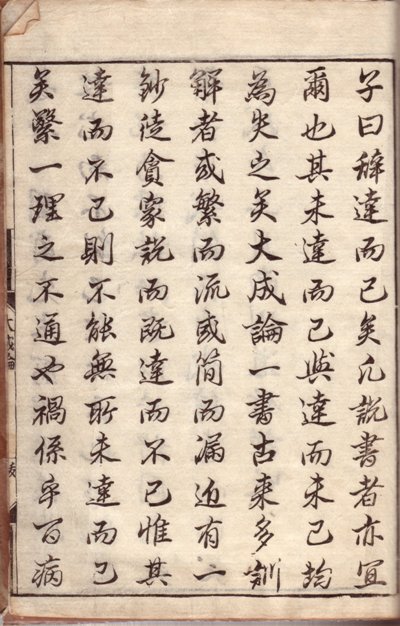 子曰辭達而已矣凡說書者亦宜
爾也其未達而已與達而未已均
為失之矣大成論一書古來多訓
解者或繁而流或簡而漏近有一
鈔徒貪家說而既達而不已惟其
達而不已則不能無所未達而已
矣繄一理之不通也禍係乎百病
大成論